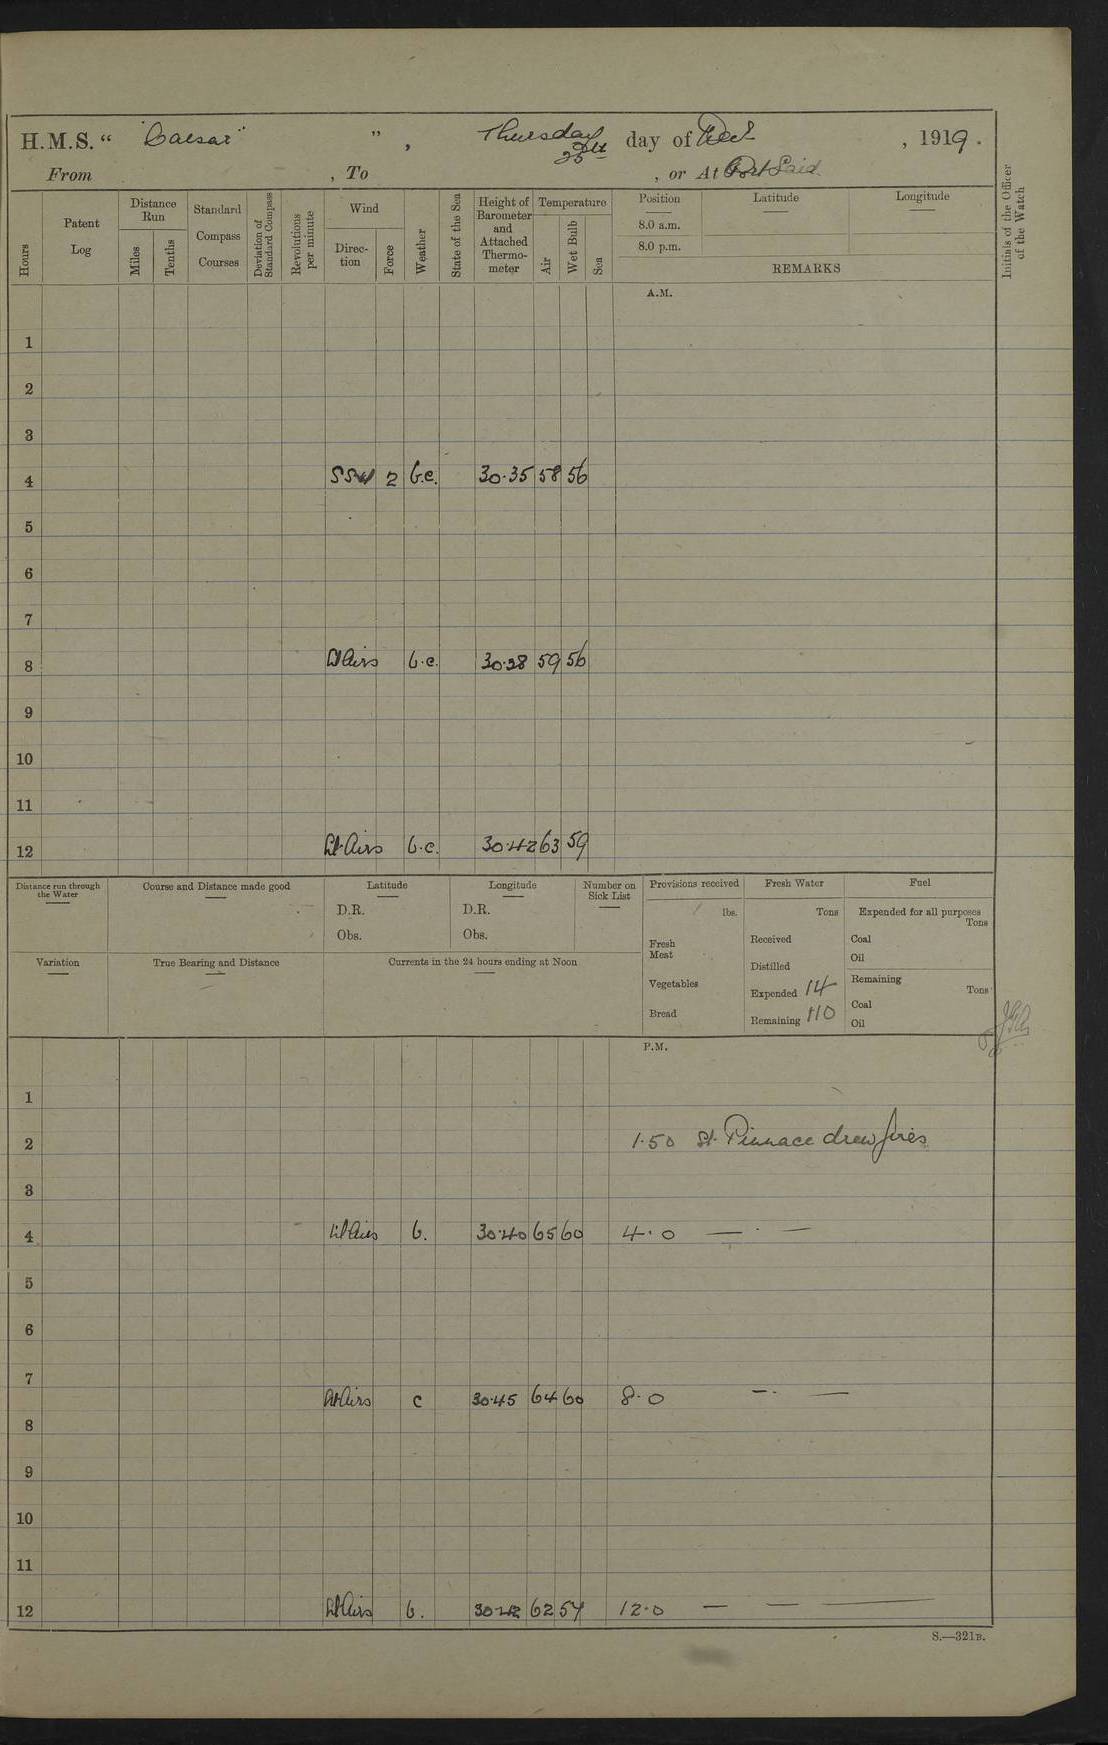 H.M.S. " "Caesar" ", Thursday 25th day of Decr, 1919.
From , To , or At Port Said
Hours
Patent Log
Distance Run
Miles
Tenths
Standard Compass Courses
Deviation of Standard Compass
Revolutions per minute
Wind
Direction
Force
Weather
State of the Sea
Height of Barometer and Attached Thermometer
Temperature
Air
Wet Bulb
Sea
Position
8.0 a.m.
8.0 p.m.
Latitude
Longitude
REMARKS
Initials of the Officer of the Watch
A.M.
1
2
3
4 SSW 2 b.c. 30.35 58 56
5
6
7
8 Lt Airs b.c. 30.28 59 56
9
10
11
12 Lt Airs b.c. 30.42 63 59
Distance run through the Water
Course and Distance made good
Latitude
D.R.
Obs.
Longitude
D.R.
Obs.
Number on Sick List
Provisions received
lbs.
Fresh Meat
Vegetables
Bread
Fresh Water
Tons
Received
Distilled
Expended 14
Remaining 110
Fuel
Expended for all purposes
Tons
Coal
Oil
Remaining
Tons
Coal
Oil
Variation
True Bearing and Distance
Currents in the 24 hours ending at Noon
P.M.
1
2 1.50 St. Pinnace drew fires
3
4 Lt Airs b. 30.40 65 60 4.0 — —
5
6
7
8 Lt Airs c 30.45 64 60 8.0 — —
9
10
11
12 Lt Airs b. 30.42 62 57 12.0 — — —
S.—321B.